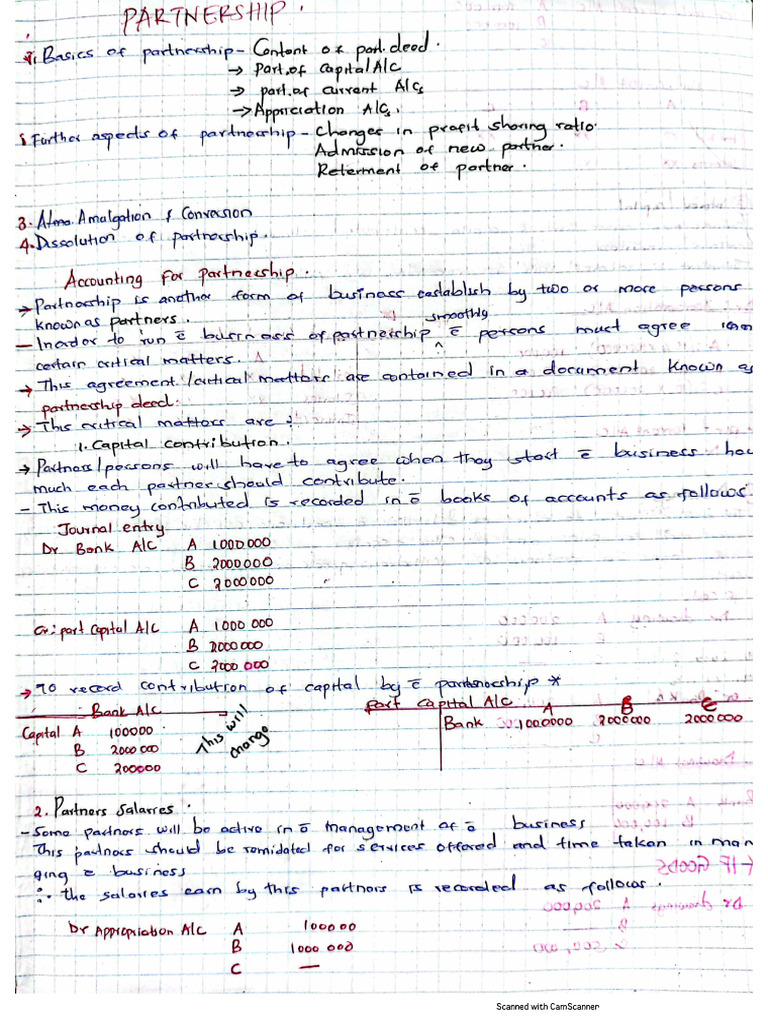 PARTNERSHIP.
1. Basics of partnership - Content of part. deed.
→ Part. of capital A/C
→ part. of current A/Cs
→ Appreciation A/Cs.
Further aspects of partnership - Changes in profit sharing ratio.
Admission of new partner.
Reterment of partner.
3. Amalgation & Conversion
4. Dissolution of partnership.
Accounting for partnership.
→ Partnership is another form of business establish by two or more persons
known as partners.
smoothly
- Inorder to run ē business of partnership ē persons must agree
certain critical matters.
→ This agreement / critical matters are contained in a document known as
partnership deed.
→ This critical matters are:
1. Capital contribution.
→ Partners/persons will have to agree when they start ē business how
much each partner should contribute.
- This money contributed is recorded in ē books of accounts as follows.
Journal entry
Dr Bank A/C A 1000000
B 2000000
C 2000000
Cr: part Capital A/C A 1000 000
B 2000000
C 2000 000
→ To record contribution of capital by ē partnership *
Bank A/C part capital A/C A B C
Capital A 100000 This will change Bank 1000000 2000000 2000000
B 2000000
C 200000
2. Partners Salarres.
- Some partners will be active in ō management of ō business
This partners should be remidated for services offered and time taken in man
ging ē business
∴ the salarres earn by this partners is recorded as follows.
Dr Appropriation A/C A 100000
B 1000 000
C —
Scanned with CamScanner